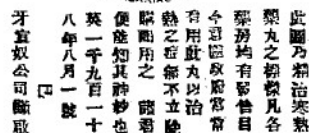 此圖乃精治寒熱
藥丸之標樣凡各
藥房均有發售目
今四國政府常常
有用此丸以治寒
熱之症無不立除
臨國用之 諒君
便能知其神妙也
英一千九百一十
八年八月一號
巴
牙直奴公司謹啟